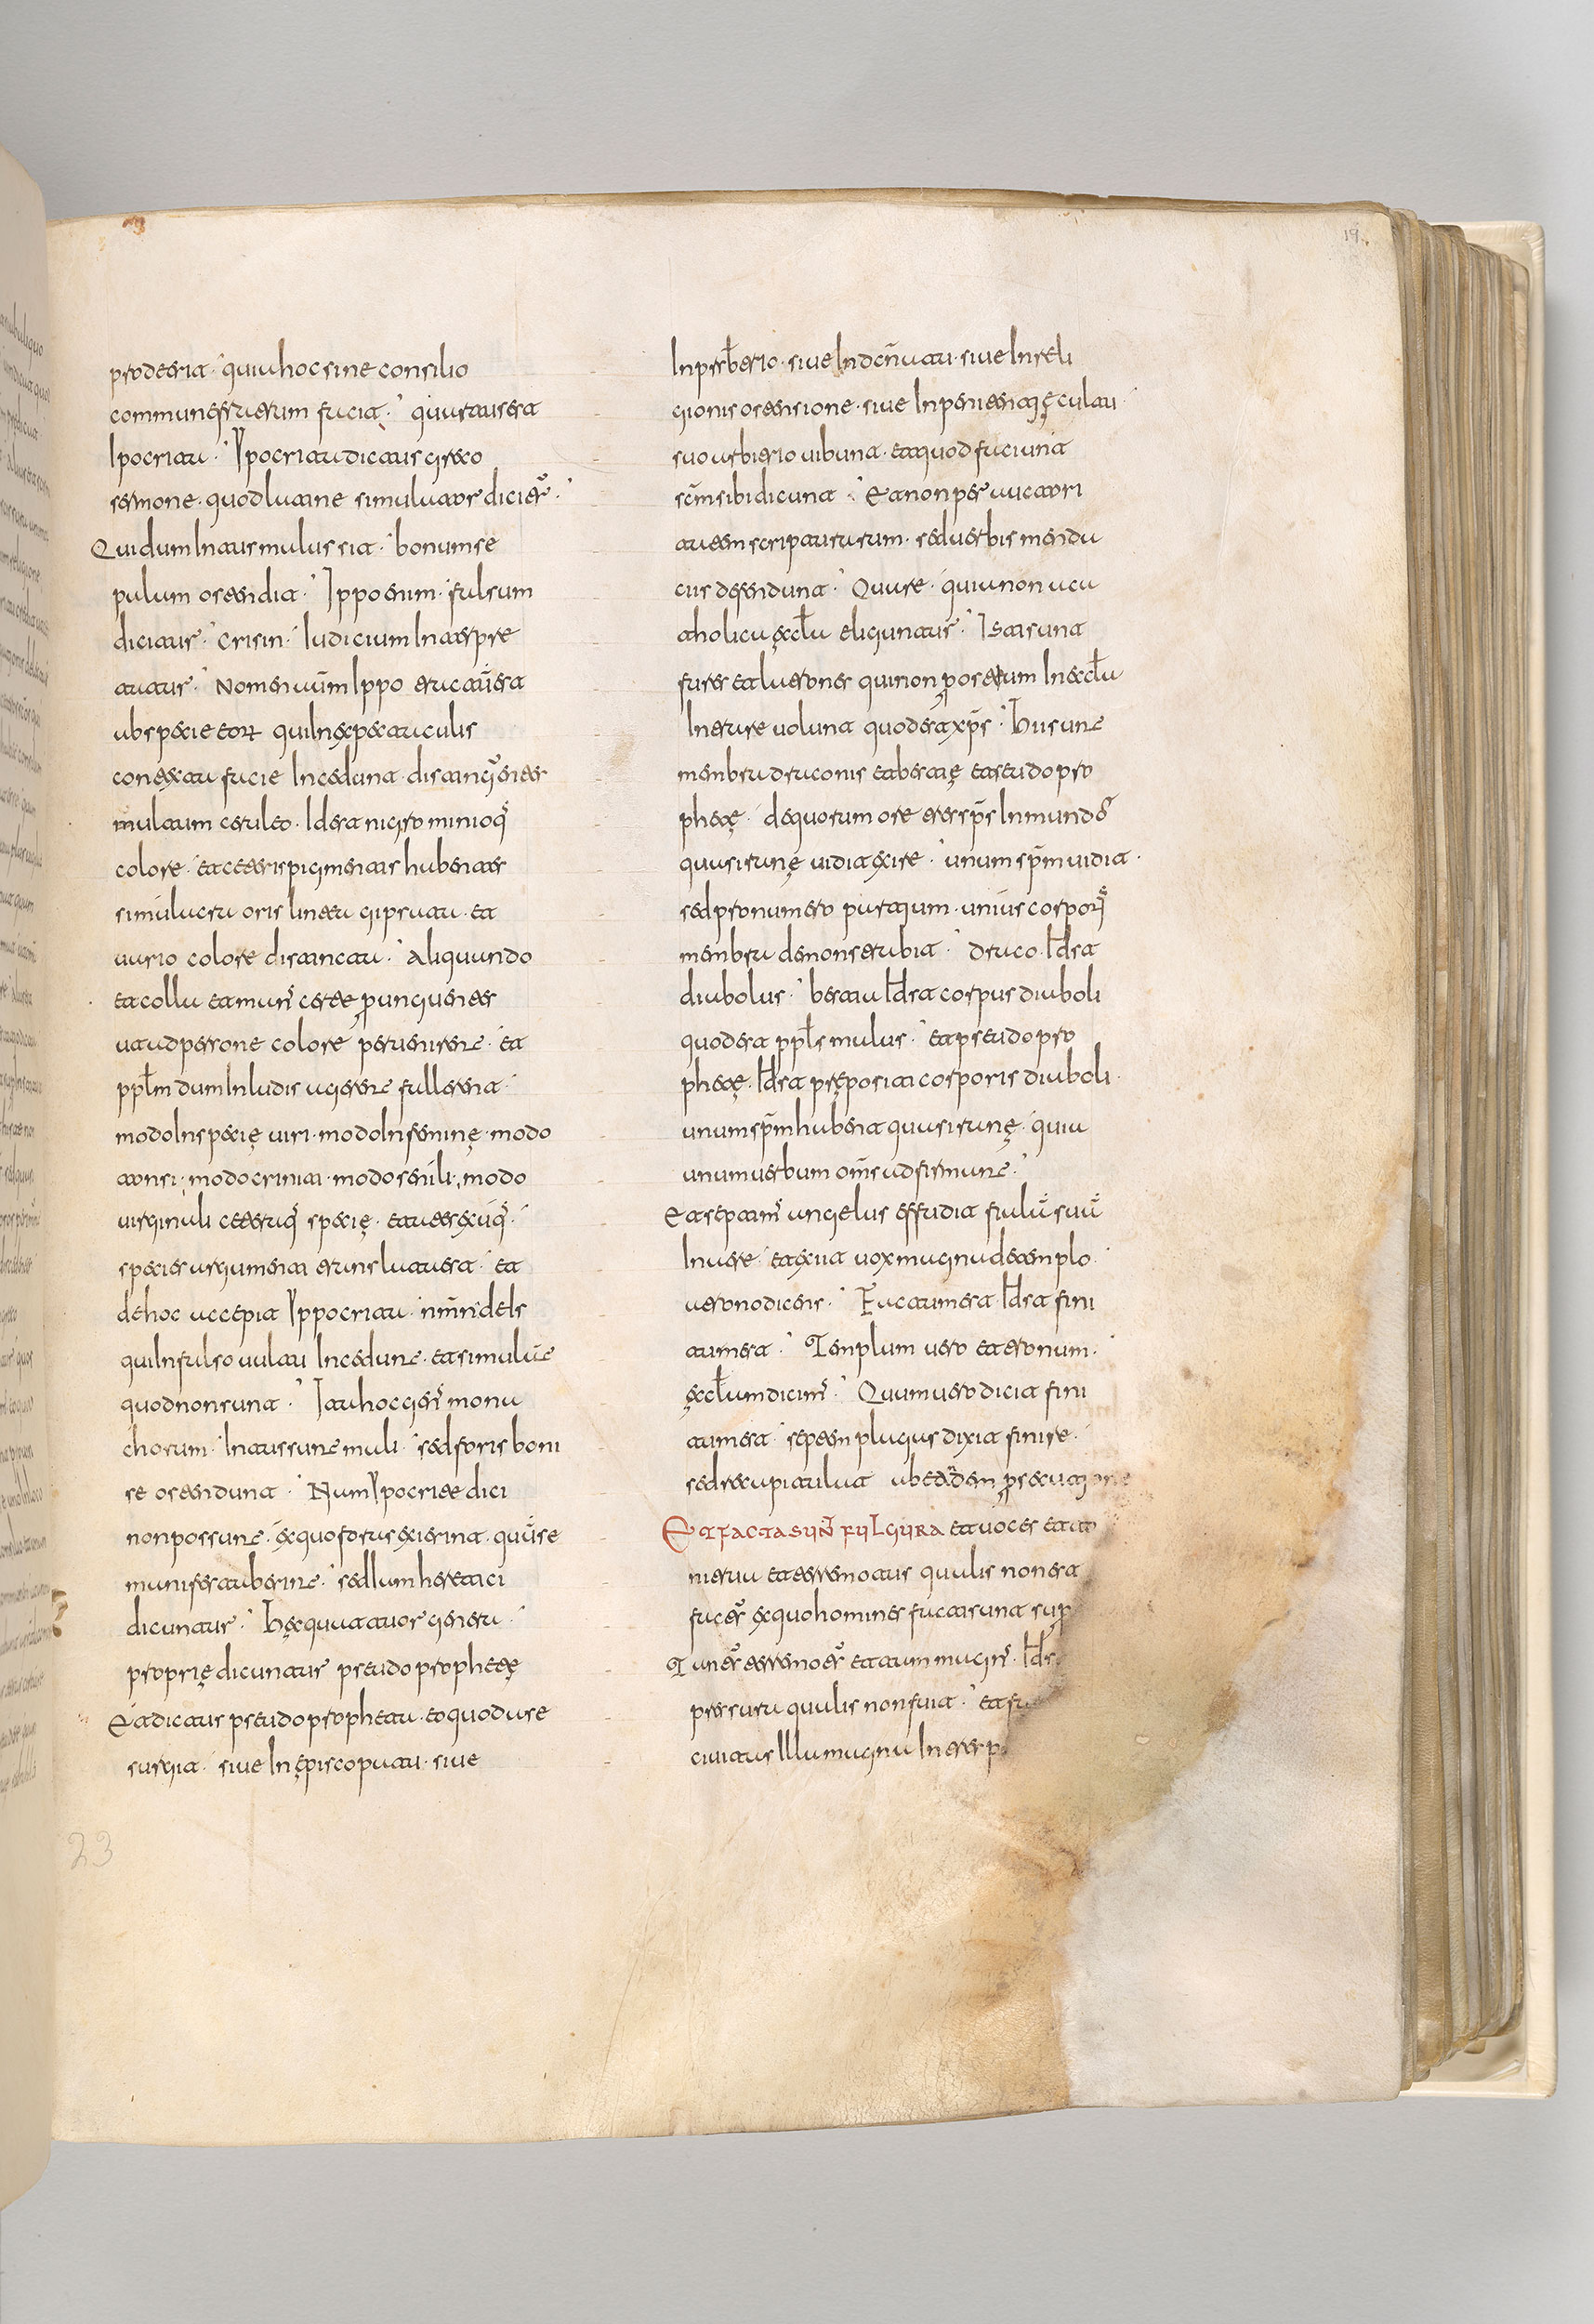 prodest· quia hoc sine consilio
commune fratrum facit· quartus est
Ipocrita· Ypocrita dicitur greco
sermone· quod latine simulator dicit͛·
Qui dum Intus malus sit· bonum se
palam ostendit· Ippo enim· falsum
dicitur· Crisin· Iudicium Interpre
tatur· Nomen aūm Ippo
ab specie eoꝝ qui In expectaculis
contecta facie Incedunt· distinguentes
ceruleo· Idest nigro minioq̃
colore· et ceteris pigmentis habentes
simulacra oris lintea gipsata· et
uario colore distincta· Aliquando
et colla et man̄ crete ꝑunguentes
ut ad persone colore peruenirent· et
ppl̄m dum In ludis agerent fallerent·
modo In specię uiri· modo In feminę· modo
tonsi· modo criniti· modo senili· modo
uirginali ceteraq̃ specię· etate sexuq̃·
species argumenta· et
de hoc accepit Yppocrita· nm̄ de Is
qui In falso uultu Incedunt· et simulāt
quod non sunt· Ita hoc gen̄ mona
chorum· Intus sunt mali· sed foris boni
se ostendunt· Nam Ypocrite dici
non possunt· ex quo foras exierint· quū se
manifestaberint· sed Iam heretici
dicuntur· Hec quattuor genera·
proprię dicuntur pseudo prophetę
Et dictus pseudo propheta· eo quod ube
surgit· siue In episcopatu· siue
In prb̄eterio· siue In dcn̄uatu· siue In reli
gionis ostensione· siue In penitentię culau
suo arbitrio uibunt· et quod faciunt
sc̄m sibi dicunt· Et non per auctori
tatem scripturarum· sed uerbis menda
cis defendunt· Quare· quia non a ca
tholica eccl̄a eliguntur· Isti sunt
fures et latrones qui non ꝑ ostium In eccl̄a
Intrare uolunt quod est xp̄s· Hii sunt
membra draconis et bestię et seudo pro
phetę· de quorum ore tres sp̄s Inmundo͛
quasi ranę uidit exire· unum sp̄m uidit·
sed pro numero partium· unius corpoꝝ
membra demonstrabit· Draco Id̄est
diabolus· bestia Id̄est corpus diaboli
quod est ppl̄s malus· et pseudo pro
phetę· Id̄est prępositi corporis diaboli·
unum sp̄m habent quasi ranę· quia
unum uerbum om̄s adfirmant·
Et septim̄ angelus effudit fialā suā
In aere· et exiit uox magna de templo·
a trono dicens· Factum est· Id̄est fini
tum est· Templum uero et tronum·
eccl̄am dicim̄· Quum uero dicit fini
tum est· septem plagas dixit finire·
sed recapitulat ab eadem persecutione
Et facta sun̄ fulgura et uoces et to
nitrua et terremotus qualis non est
fact͛ ex quo homines facti sunt sup
Tant͛ terremot͛ et tum magn̄· Id̄es
pressura qualis non fuit· et fac
ciuitas Illa magna In tres p